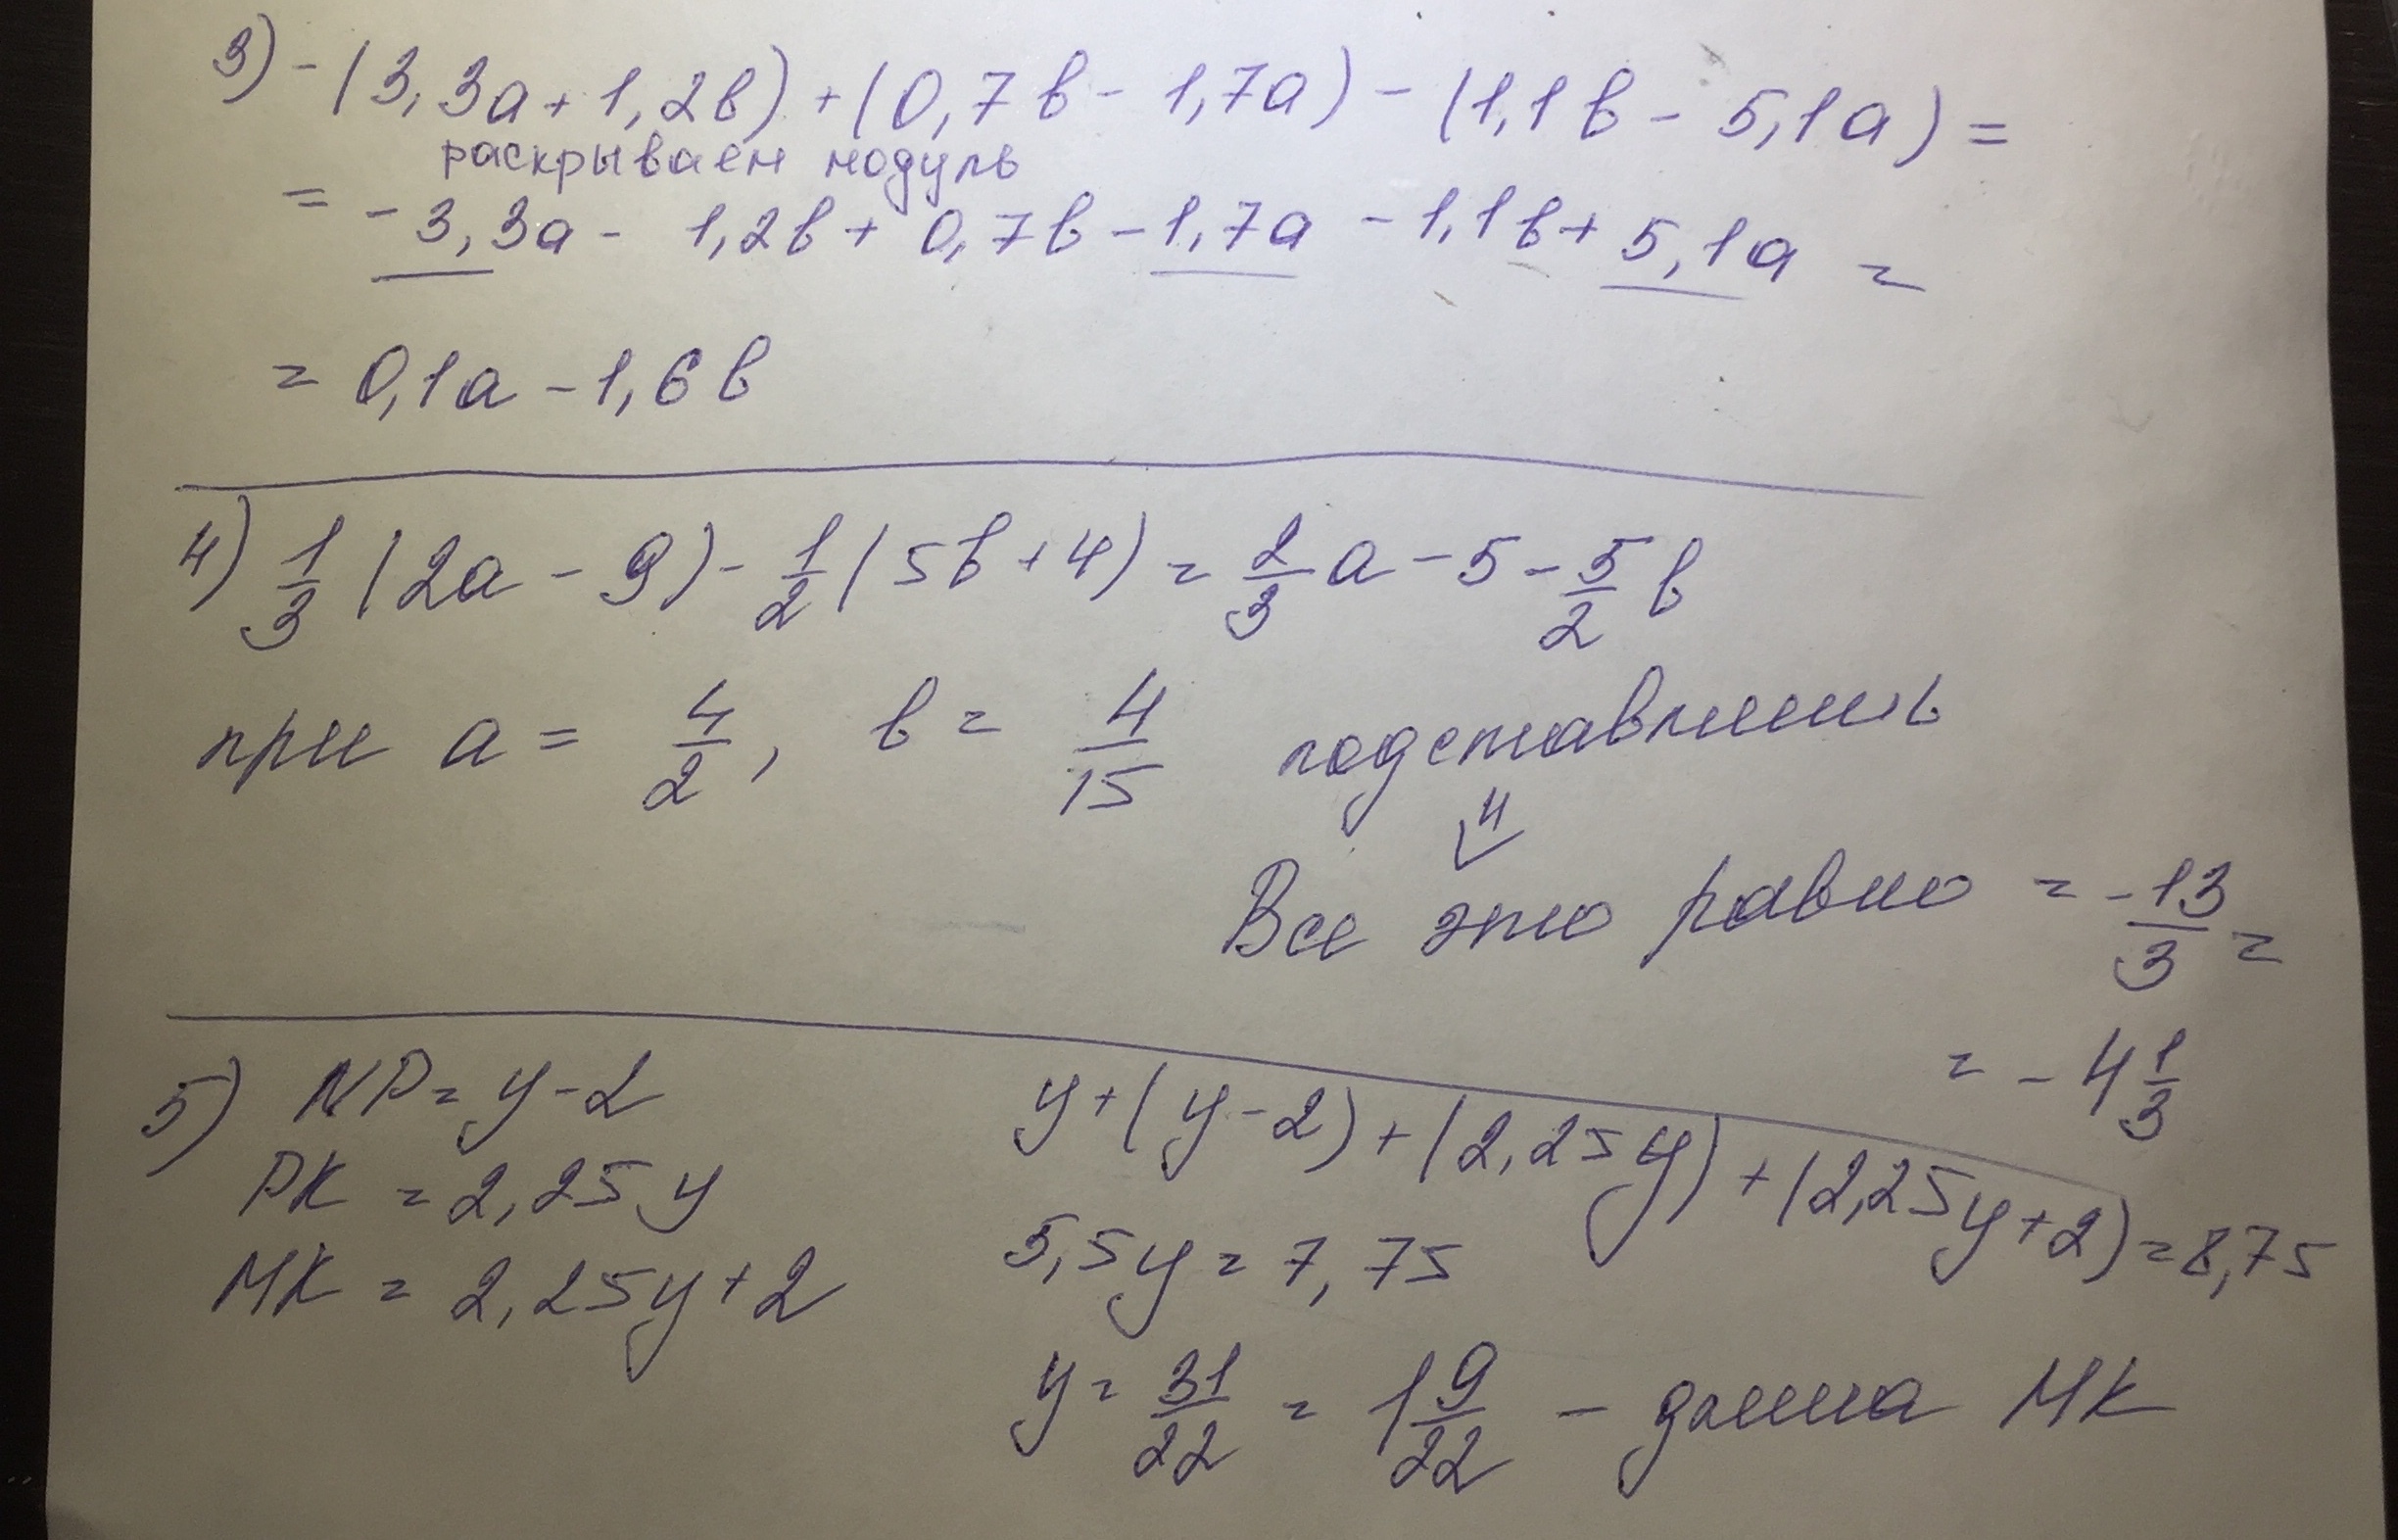 3) -(3,3a + 1,2b) + (0,7b - 1,7a) - (1,1b - 5,1a) =
раскрываем модуль
= -3,3a - 1,2b + 0,7b - 1,7a - 1,1b + 5,1a =
= 0,1a - 1,6b
4) 1/3 (2a - 9) - 1/2 (5b + 4) = 2/3 a - 5 - 5/2 b
при a = 4/2, b = 4/15 подставишь
Все это равно = -13/3 =
= -4 1/3
5) NP = y - 2
PK = 2,25y
MK = 2,25y + 2
y + (y - 2) + (2,25y) + (2,25y + 2) = 8,75
5,5y = 7,75
y = 31/22 = 1 9/22 - длина MK